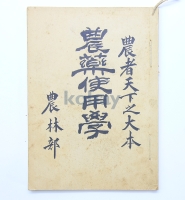 農者天下之大本
農藥使用學
農林部